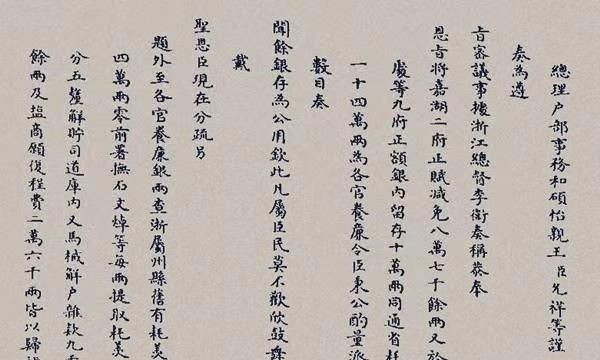 總理户部事務和碩怡親王臣允祥等謹
奏為遵
旨審議事據浙江總督李衛奏稱恭奉
恩旨將嘉湖二府正賦減免八萬七千餘兩又於
處等九府正額銀内留存十萬兩同通省耗
一十四萬兩為各官養廉令臣秉公酌量派
數目奏
聞餘銀存為公用欽此凡屬臣民莫不歡欣鼓舞
戴
聖恩臣現在分疏另
題外至各官養廉銀兩查浙屬州縣舊有耗羡
四萬兩零前署撫石文焯等每兩提取耗羡
分五釐解貯司道庫内又馬械解户雜欵九
餘兩及盐商願復程費二萬六千兩皆以歸